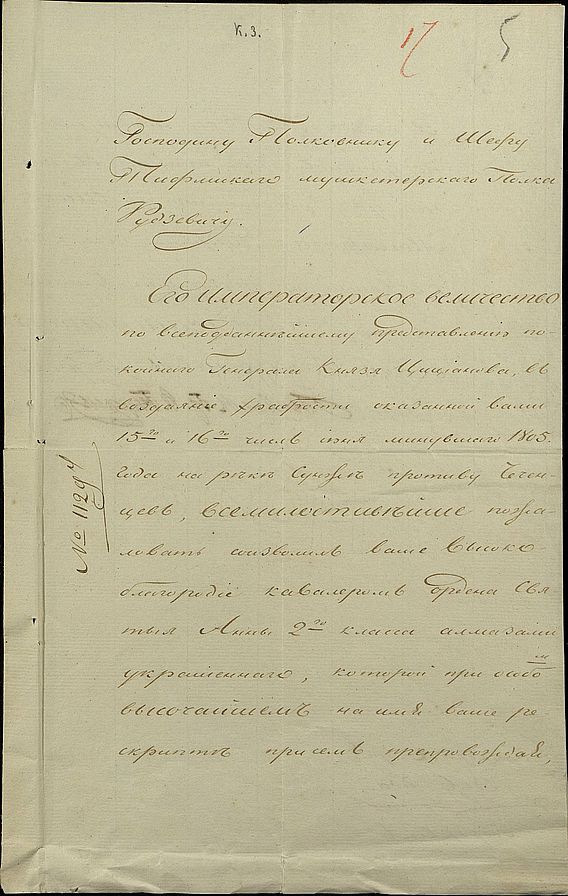 К.З.
17
5
Господину Полковнику и Шефу
Тифлискаго мушкетерскаго Полка
Рудзевичу.
Его Императорское величество
по всеподданнѣйшему представленію по-
койнаго Генерала Князя Циціанова, въ
воздаяніе храбрости оказанной вами
15го и 16го числѣ маія минувшаго 1805.
года на рѣкѣ Сунжѣ противу Чечен-
цевъ, всемилостивѣйше пожа-
ловать соизволилъ ваше высоко-
благородіе кавалеромъ ордена Свя
тыя Анны 2го класса алмазами
украшеннаго, которой при особом
высочайшемъ на имя ваше ре-
скриптѣ присемъ препровождая,
№ 11294